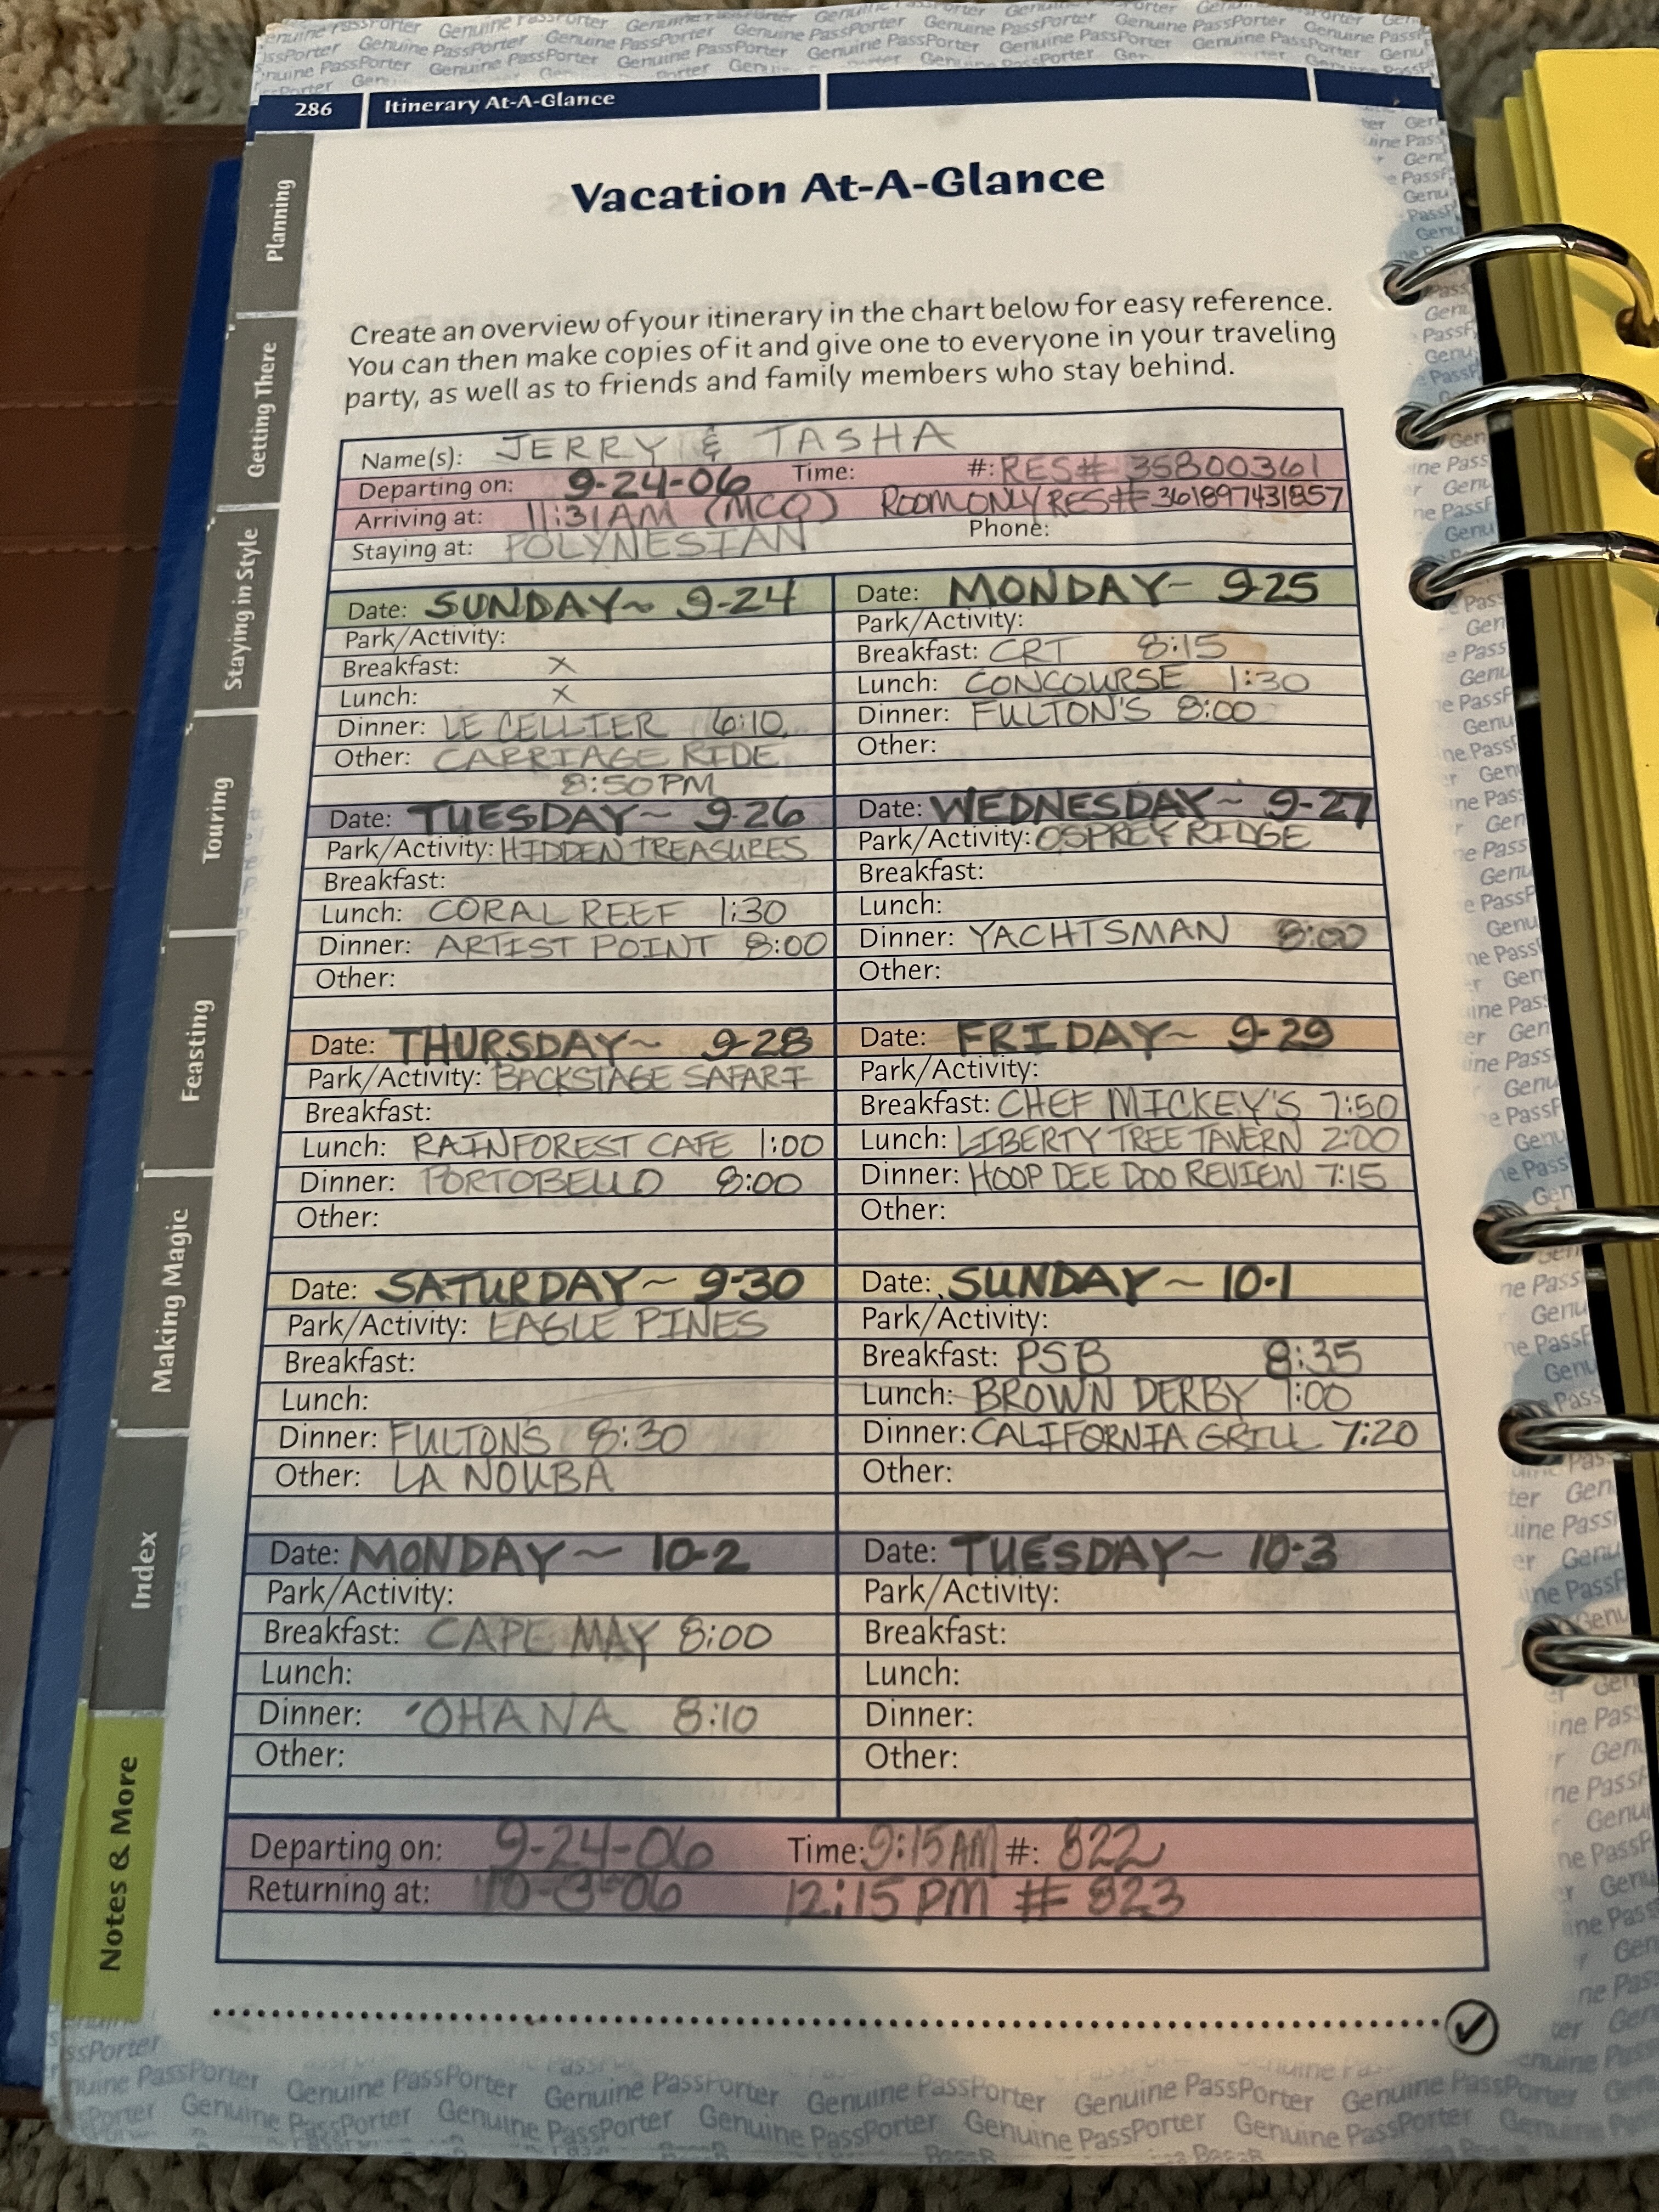 286 Itinerary At-A-Glance
Vacation At-A-Glance
Create an overview of your itinerary in the chart below for easy reference.
You can then make copies of it and give one to everyone in your traveling
party, as well as to friends and family members who stay behind.
Name(s): JERRY & TASHA
Departing on: 9-24-06 Time: #: RES# 35800361
Arriving at: 11:31AM (MCO) ROOM ONLY RES# 361897431857
Staying at: POLYNESIAN Phone:
Date: SUNDAY~ 9-24
Park/Activity:
Breakfast: X
Lunch: X
Dinner: LE CELLIER 6:10
Other: CARRIAGE RIDE
8:50PM
Date: MONDAY~ 9-25
Park/Activity:
Breakfast: CRT 8:15
Lunch: CONCOURSE 1:30
Dinner: FULTON'S 8:00
Other:
Date: TUESDAY~ 9-26
Park/Activity: HIDDEN TREASURES
Breakfast:
Lunch: CORAL REEF 1:30
Dinner: ARTIST POINT 8:00
Other:
Date: WEDNESDAY~ 9-27
Park/Activity: OSPREY RIDGE
Breakfast:
Lunch:
Dinner: YACHTSMAN 8:00
Other:
Date: THURSDAY~ 9-28
Park/Activity: BACKSTAGE SAFARI
Breakfast:
Lunch: RAINFOREST CAFE 1:00
Dinner: PORTOBELLO 8:00
Other:
Date: FRIDAY~ 9-29
Park/Activity:
Breakfast: CHEF MICKEY'S 7:50
Lunch: LIBERTY TREE TAVERN 2:00
Dinner: HOOP DEE DOO REVIEW 7:15
Other:
Date: SATURDAY~ 9-30
Park/Activity: EAGLE PINES
Breakfast:
Lunch:
Dinner: FULTONS 8:30
Other: LA NOUBA
Date: SUNDAY~ 10-1
Park/Activity:
Breakfast: PSB 8:35
Lunch: BROWN DERBY 1:00
Dinner: CALIFORNIA GRILL 7:20
Other:
Date: MONDAY~ 10-2
Park/Activity:
Breakfast: CAPE MAY 8:00
Lunch:
Dinner: 'OHANA 8:10
Other:
Date: TUESDAY~ 10-3
Park/Activity:
Breakfast:
Lunch:
Dinner:
Other:
Departing on: 9-24-06 Time: 9:15AM #: 822
Returning at: 10-3-06 12:15 PM # 823
Planning
Getting There
Staying in Style
Touring
Feasting
Making Magic
Index
Notes & More
Genuine PassPorter Genuine PassPorter Genuine PassPorter Genuine PassPorter